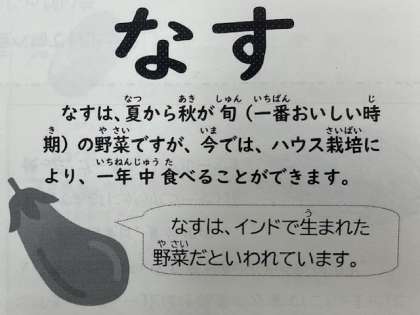 なす
なすは、夏から秋が旬（一番おいしい時
期）の野菜ですが、今では、ハウス栽培に
より、一年中食べることができます。
なすは、インドで生まれた
野菜だといわれています。